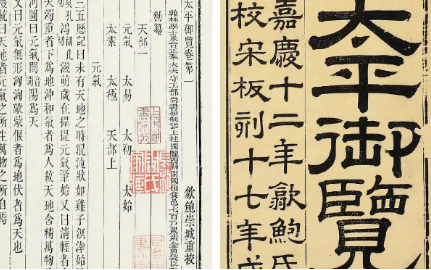 太平御覽
嘉慶十二年歙鮑氏
校宋板刻十七年成
太平御覽卷第一
歙鮑崇城重校
天部一
元氣 太易 太初 太始
太素 太極 天部上
元氣
三五歷記曰未有天地之時混沌狀如雞子溟涬始
鴻滋萌歲在攝提元氣肇始又曰清輕者
濁重者下為地沖和氣者為人故天地含精萬物
河圖曰元氣闓陽為天
又曰元氣無形洶洶蒙蒙偃者為地伏者為天也
禮統曰天地者元氣之所生萬物之所自焉